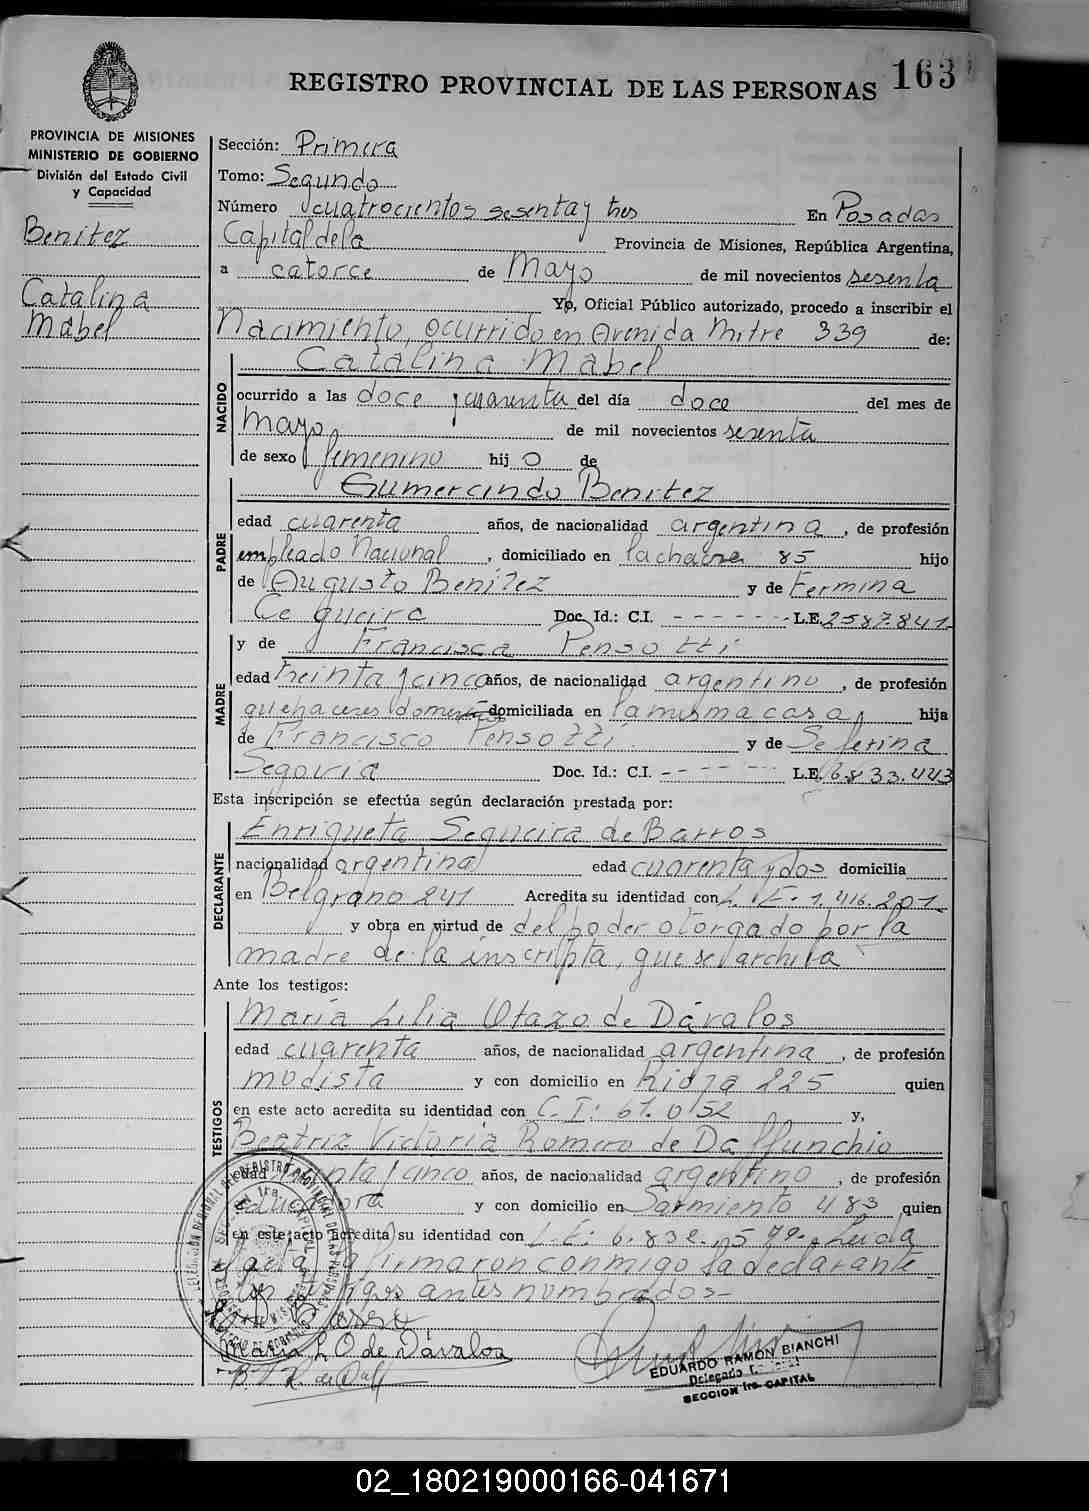 REGISTRO PROVINCIAL DE LAS PERSONAS 163
PROVINCIA DE MISIONES
MINISTERIO DE GOBIERNO
División del Estado Civil
y Capacidad
Benitez
Catalina
Mabel
Sección: Primera
Tomo: Segundo
Número cuatrocientos sesenta y tres En Posadas
Capital de la Provincia de Misiones, República Argentina,
a catorce de Mayo de mil novecientos sesenta
Yo, Oficial Público autorizado, procedo a inscribir el
Nacimiento, ocurrido en Avenida Mitre 339 de:
NACIDO
Catalina Mabel
ocurrido a las doce y cuarenta del día doce del mes de
Mayo de mil novecientos sesenta
de sexo femenino hij o de
PADRE
Gumercindo Benitez
edad cuarenta años, de nacionalidad argentina, de profesión
empleado Nacional, domiciliado en la chacra 85 hijo
de Augusto Benítez y de Fermina
Ce queira Doc. Id.: C.I. - - - - - - - L.E. 2587.841.
MADRE
y de Francisca Pensotti
edad treinta y cinco años, de nacionalidad argentino, de profesión
quehaceres domesticos domiciliada en la misma casa, hija
de Francisco Pensotti y de Seferina
Segovia Doc. Id.: C.I. - - - - - - L.E. 6.833.443
Esta inscripción se efectúa según declaración prestada por:
DECLARANTE
Enriqueta Sequeira de Barros
nacionalidad argentina edad cuarenta y dos domicilia
en Belgrano 241 Acredita su identidad con L.E. 1.416.201
y obra en virtud de del poder otorgado por la
madre de la inscripta, que se archiva
Ante los testigos:
TESTIGOS
María Lilia Otazo de Dávalos
edad cuarenta años, de nacionalidad argentina, de profesión
modista y con domicilio en Rioja 225 quien
en este acto acredita su identidad con C.I: 61.052 y,
Beatriz Victoria Romero de Daffunchio
edad años, de nacionalidad argentino, de profesión
educadora y con domicilio en Sarmiento 483 quien
en este acto acredita su identidad con L.E: 6.832.579. Leida
el acta la firmaron conmigo la declarante
los testigos antes nombrados-
Maria L O de Dávalos
EDUARDO RAMON BIANCHI
Delegado
SECCION 1ra. CAPITAL
02_180219000166-041671